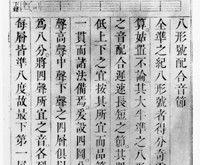 八形號配合音節
全準之紀八形號者得分奇
算姑置不論其大半準之八
之音配合遲速長短之節其
低上下之宜按其所宜而品節
一貫而諸法備焉爰設四層
聲高聲中聲下聲之四層俱
為八分將四聲所宜之音各
每層皆準八度故最下第一